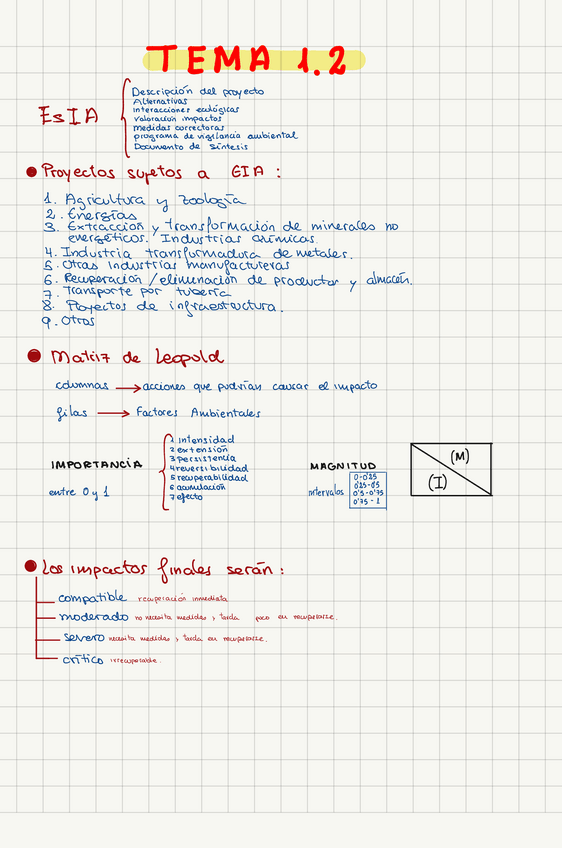 TEMA 1.2
EsIA
Descripción del proyecto
Alternativas
interacciones ecológicas
valoración impactos
medidas correctoras
programa de vigilancia ambiental
Documento de síntesis
Proyectos sujetos a EIA :
1. Agricultura y zoología
2. Energías
3. Extracción y transformación de minerales no
energéticos. Industrias químicas.
4. Industria transformadora de metales.
5. Otras industrias manufactureras
6. Recuperación/eliminación de productos y almacén.
7. Transporte por tubería
8. Proyectos de infraestructura.
9. Otros
Matriz de Leopold
columnas → acciones que podrían causar el impacto
filas → Factores Ambientales
IMPORTANCIA
entre 0 y 1
1 intensidad
2 extensión
3 persistencia
4 reversibilidad
5 recuperabilidad
6 acumulación
7 efecto
MAGNITUD
intervalos
0-0'25
0'25-0'5
0'5-0'75
0'75-1
(M)
(I)
Los impactos finales serán :
compatible recuperación inmediata
moderado no necesita medidas y tarda poco en recuperarse.
severo necesita medidas y tarda en recuperarse.
crítico irrecuperable.